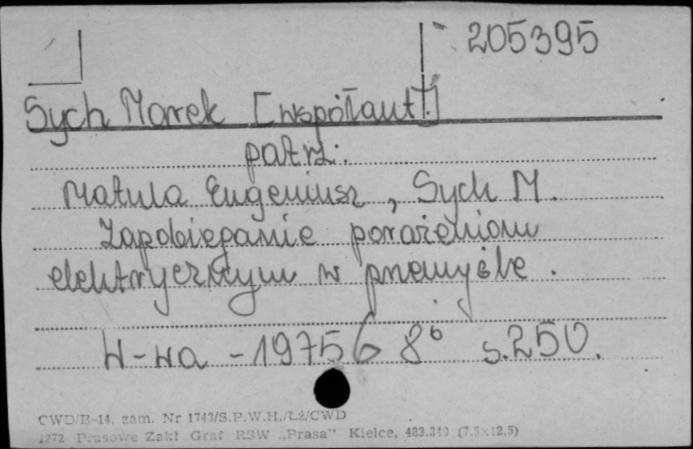 205395
Sych Marek [współaut.]
patrz:
Matula Eugeniusz, Sych M.
Zapobieganie porażeniom
elektrycznym w przemyśle.
W-wa - 1975 8° s. 250.
CWD/B-14. zam. Nr 1743/S.P.W.H./Łź/CWD
1272 Prasowe Zakł Graf RSW „Prasa" Kielce, 483.340 (7.5x12,5)